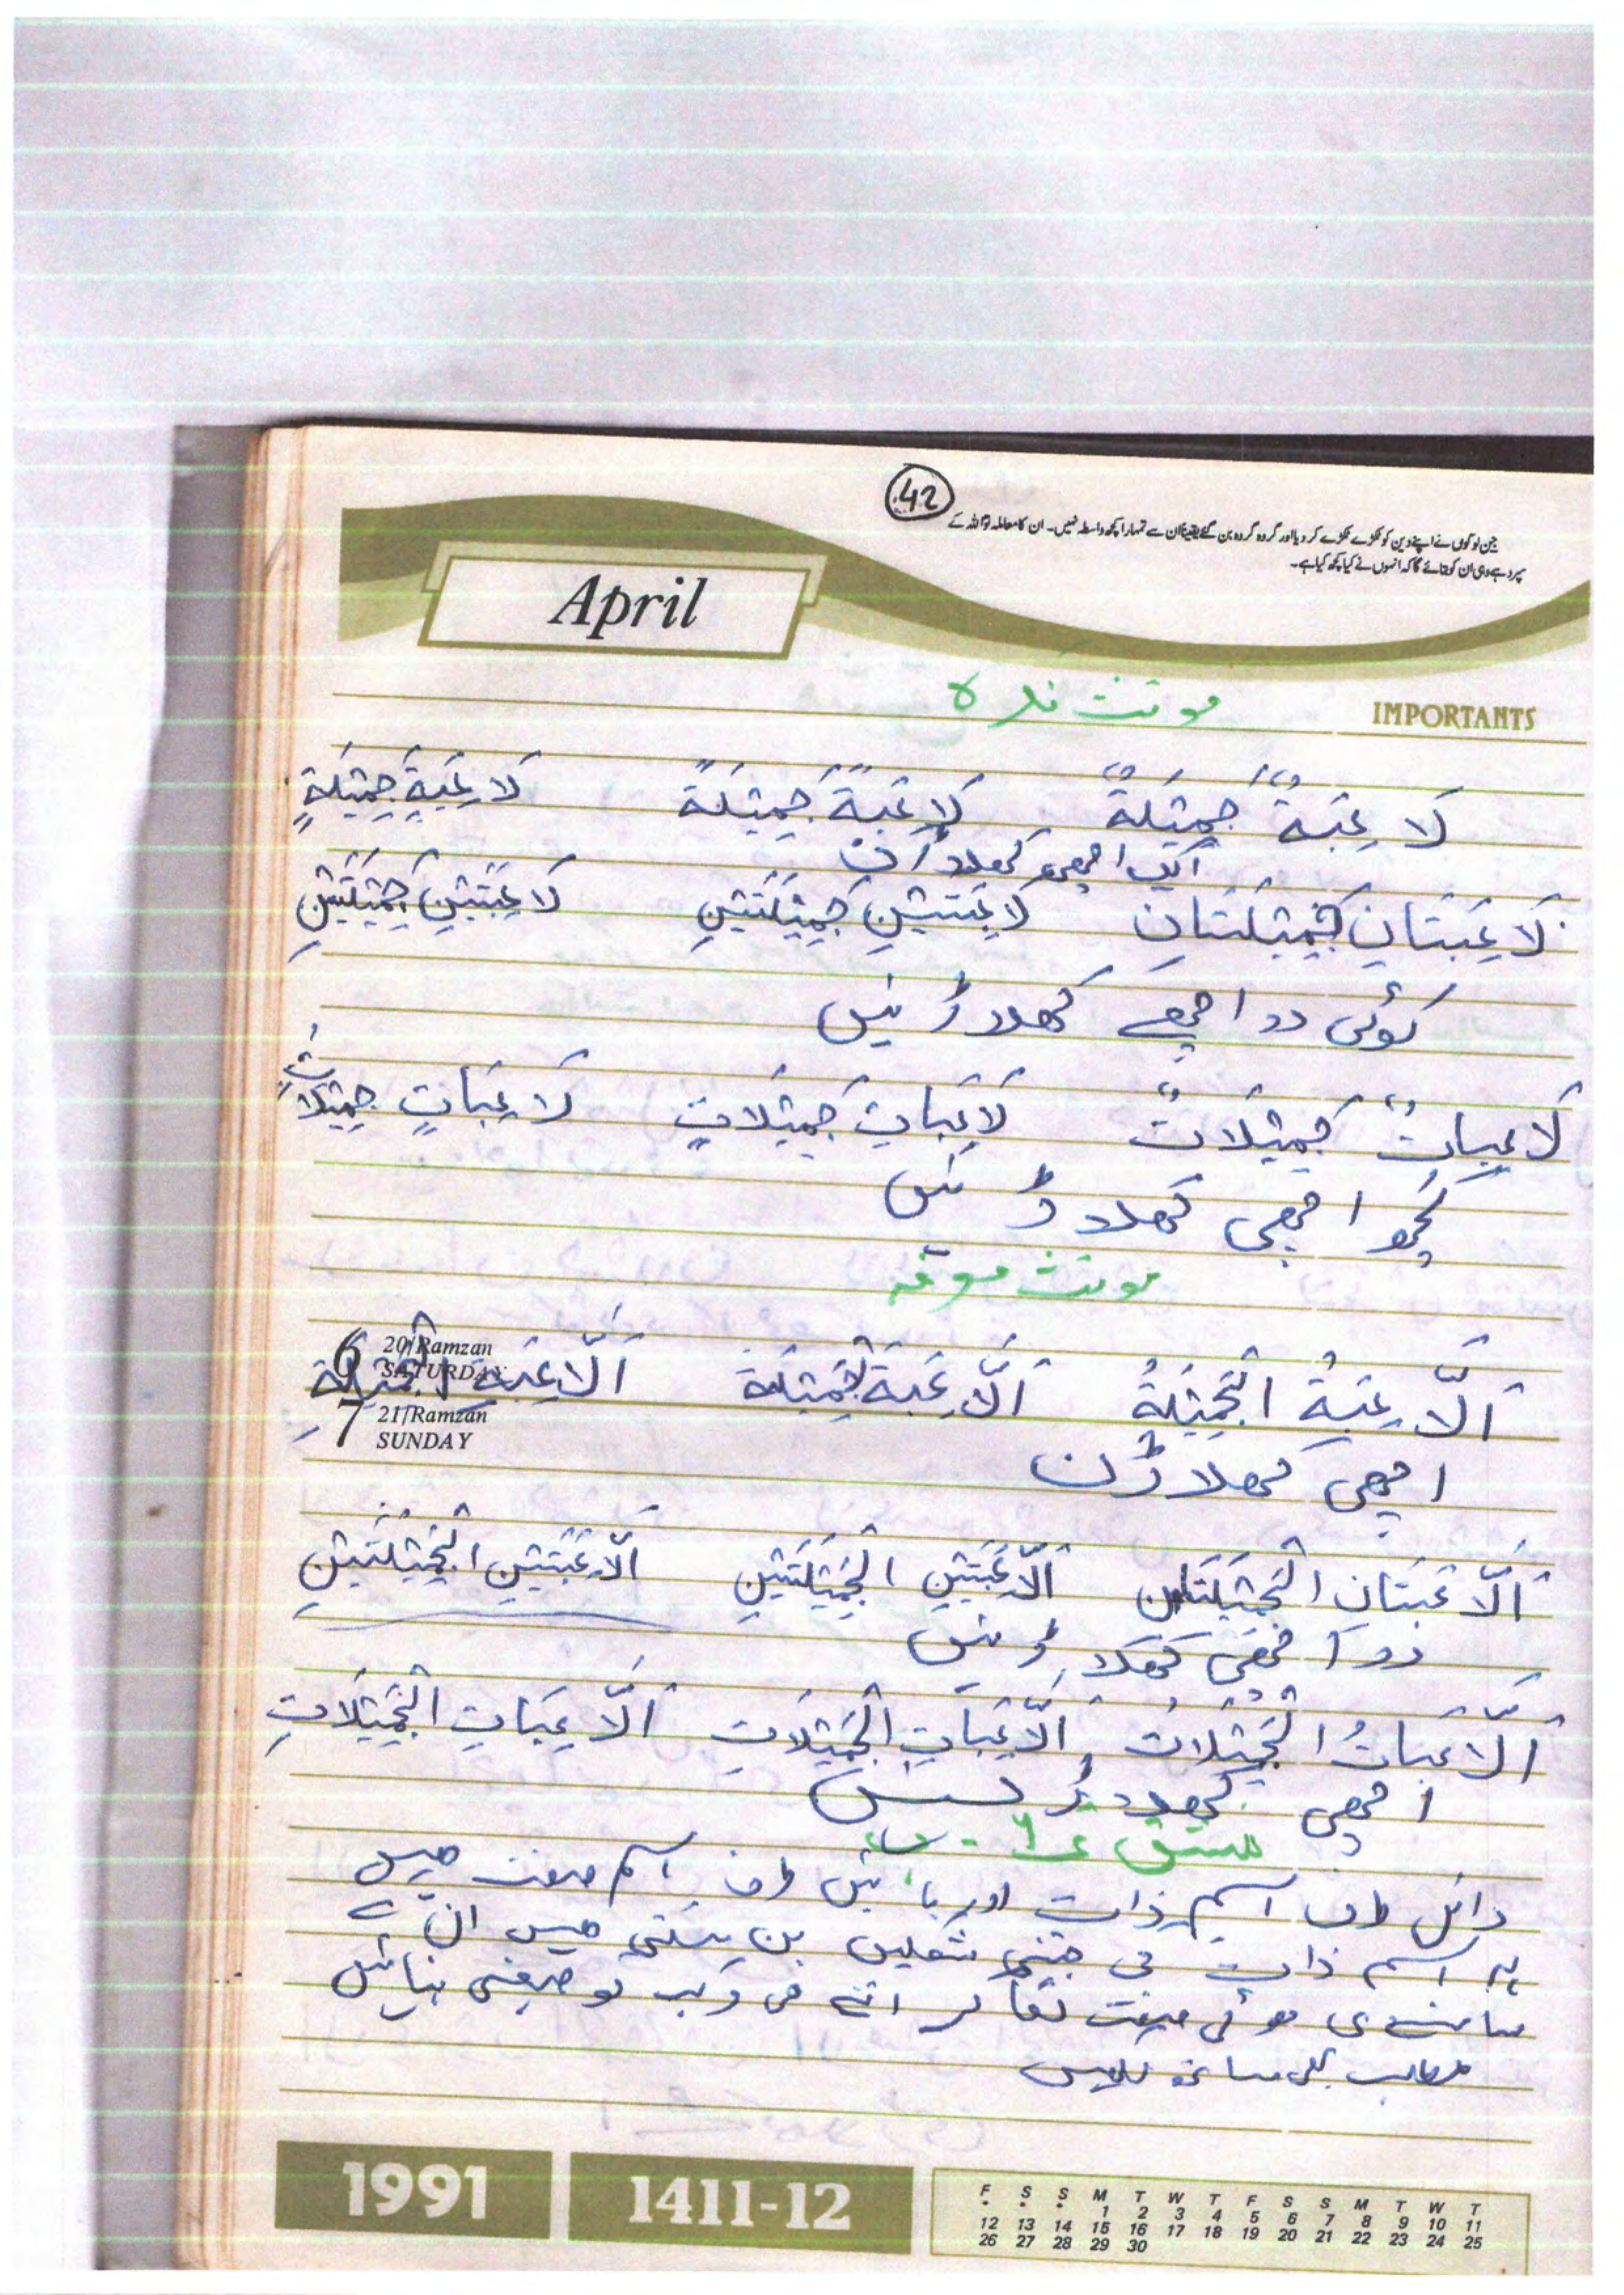 42
جن لوگوں نے اپنے دین کو ٹکڑے ٹکڑے کر دیا اور گروہ گروہ بن گئے یقیناً ان سے تمہارا کچھ واسطہ نہیں۔ ان کا معاملہ تو اللہ کے
سپرد ہے وہی ان کو بتائے گا کہ انہوں نے کیا کچھ کیا ہے۔
April
IMPORTANTS
مونث نکرہ
لَاعِبَةٌ جَمِيْلَةٌ لَاعِبَةً جَمِيْلَةً لَاعِبَةٍ جَمِيْلَةٍ
ایک اچھی کھلاڑن
لَاعِبَتَانِ جَمِيْلَتَانِ لَاعِبَتَيْنِ جَمِيْلَتَيْنِ لَاعِبَتَيْنِ جَمِيْلَتَيْنِ
کوئی دو اچھے کھلاڑنیں
لَاعِبَاتٌ جَمِيْلَاتٌ لَاعِبَاتٍ جَمِيْلَاتٍ لَاعِبَاتٍ جَمِيْلَاتٍ
کچھ اچھی کھلاڑنیں
مونث معرفہ
اَلَّاعِبَةُ الْجَمِيْلَةُ اَلَّاعِبَةَ الْجَمِيْلَةَ اَلَّاعِبَةِ الْجَمِيْلَةِ
6 20/Ramzan SATURDAY
7 21/Ramzan SUNDAY
اچھی کھلاڑن
اَلَّاعِبَتَانِ الْجَمِيْلَتَانِ اَلَّاعِبَتَيْنِ الْجَمِيْلَتَيْنِ اَلَّاعِبَتَيْنِ الْجَمِيْلَتَيْنِ
دو اچھی کھلاڑنیں
اَلَّاعِبَاتُ الْجَمِيْلَاتُ اَلَّاعِبَاتِ الْجَمِيْلَاتِ اَلَّاعِبَاتِ الْجَمِيْلَاتِ
اچھی کھلاڑنیں
مشق
دائیں طرف اسم ذات اور بائیں طرف اسم صفت ہیں
ہر اسم ذات کی جتنی شکلیں بن سکتی ہیں ان کے
سامنے دی ہوئی صفت لگا کر اتنے ہی مرکب توصیفی بنائیں
مطلب بھی ساتھ لکھیں
1991
1411-12
F S S M T W T F S S M T W T
* * * 1 2 3 4 5 6 7 8 9 10 11
12 13 14 15 16 17 18 19 20 21 22 23 24 25
26 27 28 29 30